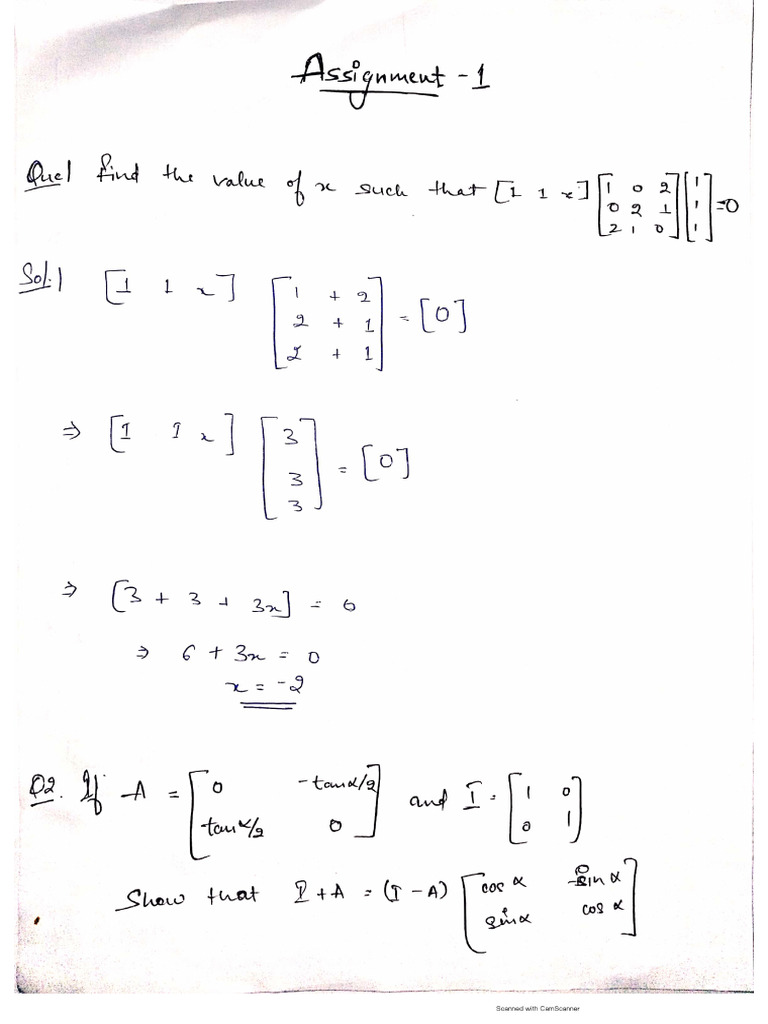 Assignment - 1
Que1 find the value of x such that [1 1 x] [1 0 2; 0 2 1; 2 1 0] [1; 1; 1] = 0
Sol.1 [1 1 x] [1 + 2; 2 + 1; 2 + 1] = [0]
⇒ [1 1 x] [3; 3; 3] = [0]
⇒ [3 + 3 + 3x] = 0
⇒ 6 + 3x = 0
x = -2
Q2. If A = [0 -tanα/2; tanα/2 0] and I = [1 0; 0 1]
Show that I + A = (I - A) [cos α -sin α; sin α cos α]
Scanned with CamScanner